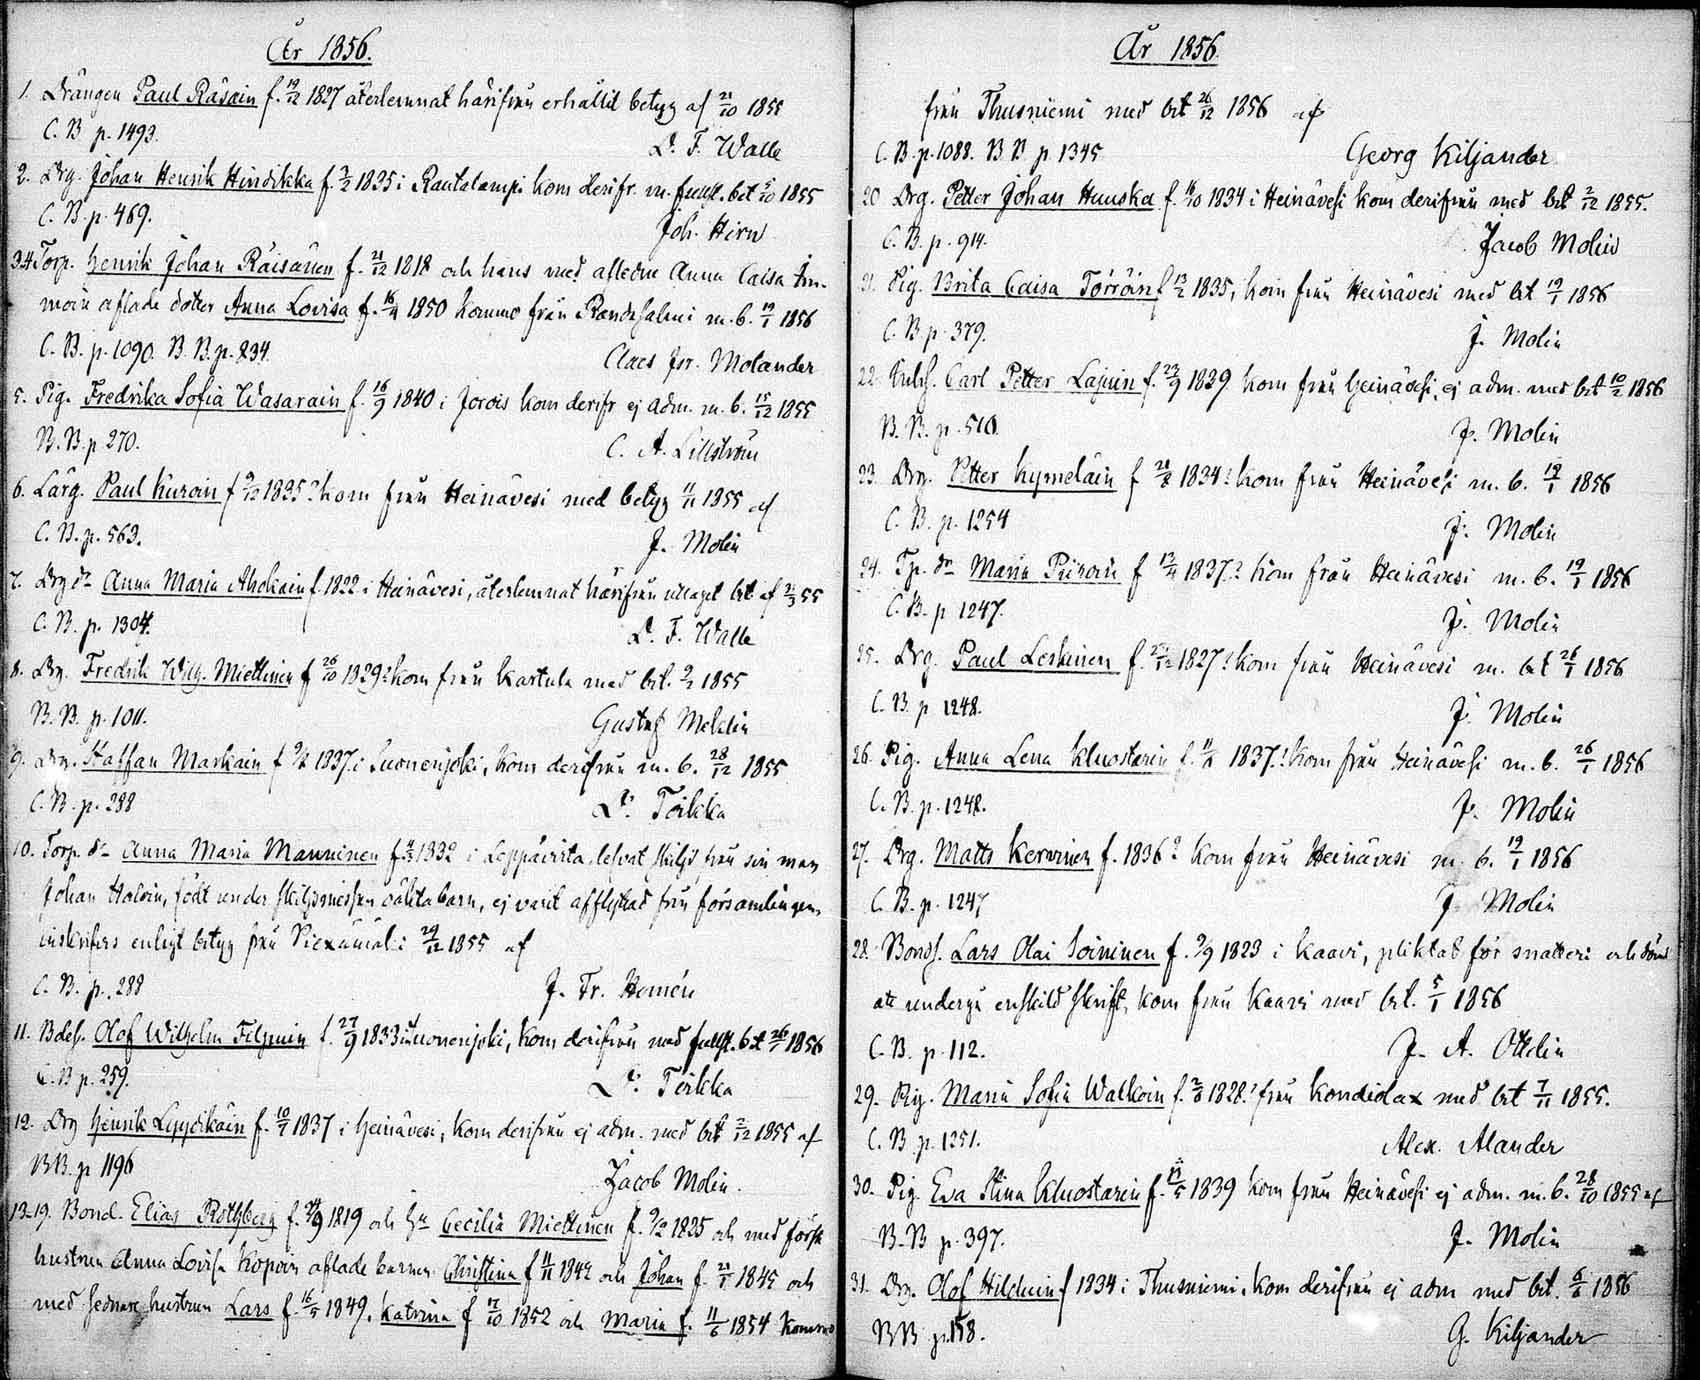 År 1856.
1. Drängen Paul Räsain f. 19/12 1827 återlemnat härifrån erhållit betyg af 21/10 1855
C. B p. 1493.
D. F. Walle
2. Drg. Johan Henrik Hindikka f. 2/2 1835 i Rautalampi kom derifr. m. frejst. bet /10 1855
C. B. p. 469.
Joh. Hirn
3.4 Torp. Henrik Johan Räisänen f. 21/12 1818 och hans med aflidne Anna Caisa Im-
moin aflade doter Anna Lovisa f. 16/4 1850 kommo från Randasalmi m. b. 19/1 1856
C. B. p. 1090. B. B. p. 234.
Claes Jor. Molander
5. Pig. Fredrika Sofia Wasarain f. 16/9 1840 i Jorois kom derifr ej adm. m. b. 15/12 1855
B. B. p 270.
C. A. Lillström
6. Lärg. Paul Kuroin f 9/12 1835? kom från Heinävesi med betyg 11/11 1855 af
C. B. p. 563.
J. Molin
7. Drg dr Anna Maria Ahokain f. 1822 i Heinävesi, återlemnat härifrån uttaget bet. af 2/3 55
C. B. p. 1304.
D. F. Walle
8. Drg. Fredrik Wilh. Miettinen f 26/10 1829? kom från Kartula med bet. 9/2 1855
B. B. p. 1011.
Gustaf Meldin
9. Drg. Staffan Markain f 9/2 1837 i Suonenjoki, kom derifrån m. b. 28/12 1855
C. B. p. 288
Toikka
10. Torp. dr Anna Maria Manninen f 1832 i Leppävirta, lefvat skiljd från sin man
Johan Halvin, födt under skiljsmessan oäkta barn, ej varit afflyttad från församlingen,
inskrifves enligt betyg från Piexämäki 29/12 1855 af
C. B. p. 288
J. Fr. Homén
11. Bdes. Olof Wilhelm Filpuin f. 27/9 1833 i Suonenjoki, kom derifrån med frejst. bt 26/1 1856
C. B p. 259.
Toikka
12. Drg Henrik Lyydikäin f. 10/7 1837 i Heinävesi, kom derifrån ej adm. med bet 2/12 1855 af
BB. p 1196
Jacob Molin.
13-19. Bond. Elias Rothberg f. /9 1819 och hu Cecilia Miettinen f. 9/2 1825 och med förra
hustrun Anna Lovisa Kopoin aflade barnen Christina f 11/11 1842 och Johan f. 21/5 1845 och
med sednare hustrun Lars f. 16/5 1849, Katrina f 17/10 1852 och Maria f. 11/6 1854 kommo
År 1856.
från Thusniemi med bet 26/12 1856 af
C. B. p. 1088. B B p. 1345
Georg Kiljander
20 Drg. Petter Johan Huuska f. 16/10 1834 i Heinävesi kom derifrån med bet 2/12 1855.
C. B. p. 914.
Jacob Molin
21. Pig. Brita Caisa Törröin f 13/2 1835, kom från Heinävesi med bet 19/1 1856
C. B p. 379.
J. Molin
22. Carl Petter Lajuin f. 22/9 1839 kom från Heinävesi, ej adm. med bet 10/2 1856
B. B. p. 510.
J. Molin
23. Drg. Petter Kymeläin f 21/8 1834? kom från Heinävesi m. b. 19/1 1856
C. B. p. 1254
J. Molin
24. Tp. dr Maria Piiroin f 12/4 1837? kom från Heinävesi m. b. 19/1 1856
C. B. p 1247.
J. Molin
25. Drg. Paul Leskinen f. 25/12 1827? kom från Heinävesi m. bet 26/1 1856
C. B. p 1248.
J. Molin
26. Pig. Anna Lena Kluostarin f. 1837? kom från Heinävesi m. b. 26/1 1856
C. B. p. 1248.
J. Molin
27. Drg. Matts Kervinen f. 1836? kom från Heinävesi m. b. 19/1 1856
C. B. p. 1247
J. Molin
28. Bonds. Lars Olai Soininen f. 9/9 1823 i Kaavi, pliktat för snatteri och dömd
att undergå enskild skrift, kom från Kaavi med bet. 5/1 1856
C. B. p. 112.
J. A. Ottelin
29. Pig. Maria Sofia Watkoin f. 2/8 1828? från Kondiolax med bet 7/11 1855.
C. B. p. 1351.
Alex. Alander
30. Pig. Eva Stina Kluostarin f. 17/5 1839 kom från Heinävesi ej adm. m. b. 28/10 1855 af
B. B p. 397.
J. Molin
31. Drg. Olof Hilduin f 1834 i Thusniemi, kom derifrån ej adm med bet. 6/6 1856
BB p. 158.
G. Kiljander